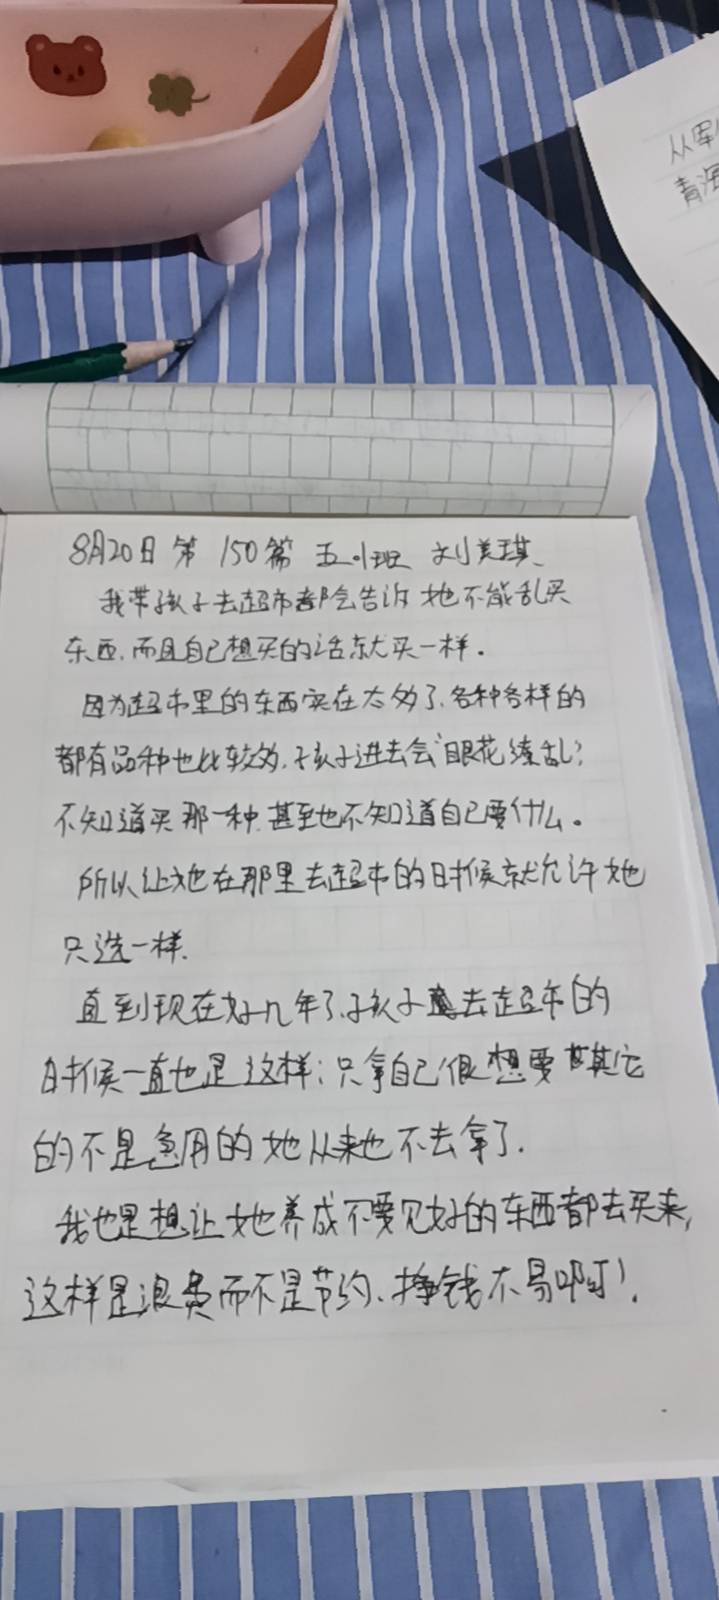 从军
青海
8月20日 第150篇 五小班 刘美琪、
我带孩子去超市都会告诉她不能乱买
东西，而且自己想买的话就买一样。
因为超市里的东西实在太多了，各种各样的
都有品种也比较多，孩子进去会眼花缭乱；
不知道买那一种，甚至也不知道自己要什么。
所以让她在那里去超市的时候就允许她
只选一样，
直到现在好几年了，孩子去超市的
时候一直也是这样；只拿自己很想要其它
的不是急用的她从来也不去拿了，
我也是想让她养成不要见好的东西都去买来，
这样是浪费而不是节约、挣钱不易啊！